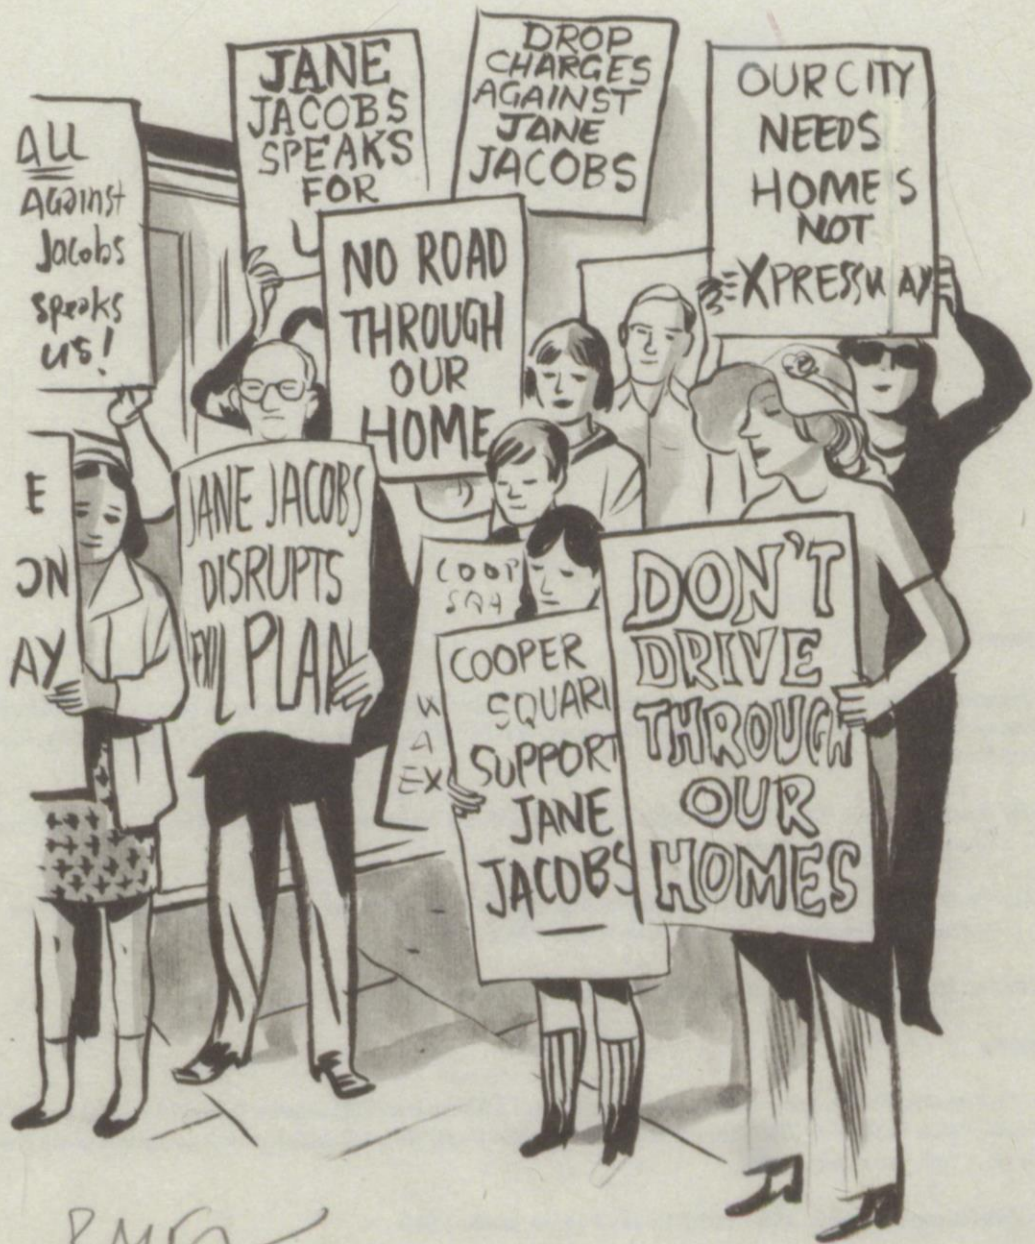 ALL
AGainst
Jacobs
speaks
us!
JANE
JACOBS
SPEAKS
FOR
DROP
CHARGES
AGAINST
JANE
JACOBS
OUR CITY
NEEDS
HOMES
NOT
EXPRESSWAY
NO ROAD
THROUGH
OUR
HOME
E
ON
AY
JANE JACOBS
DISRUPTS
EVIL PLAN
COOP
SQA
W
A
EX
COOPER
SQUARE
SUPPORT
JANE
JACOBS
DON'T
DRIVE
THROUGH
OUR
HOMES